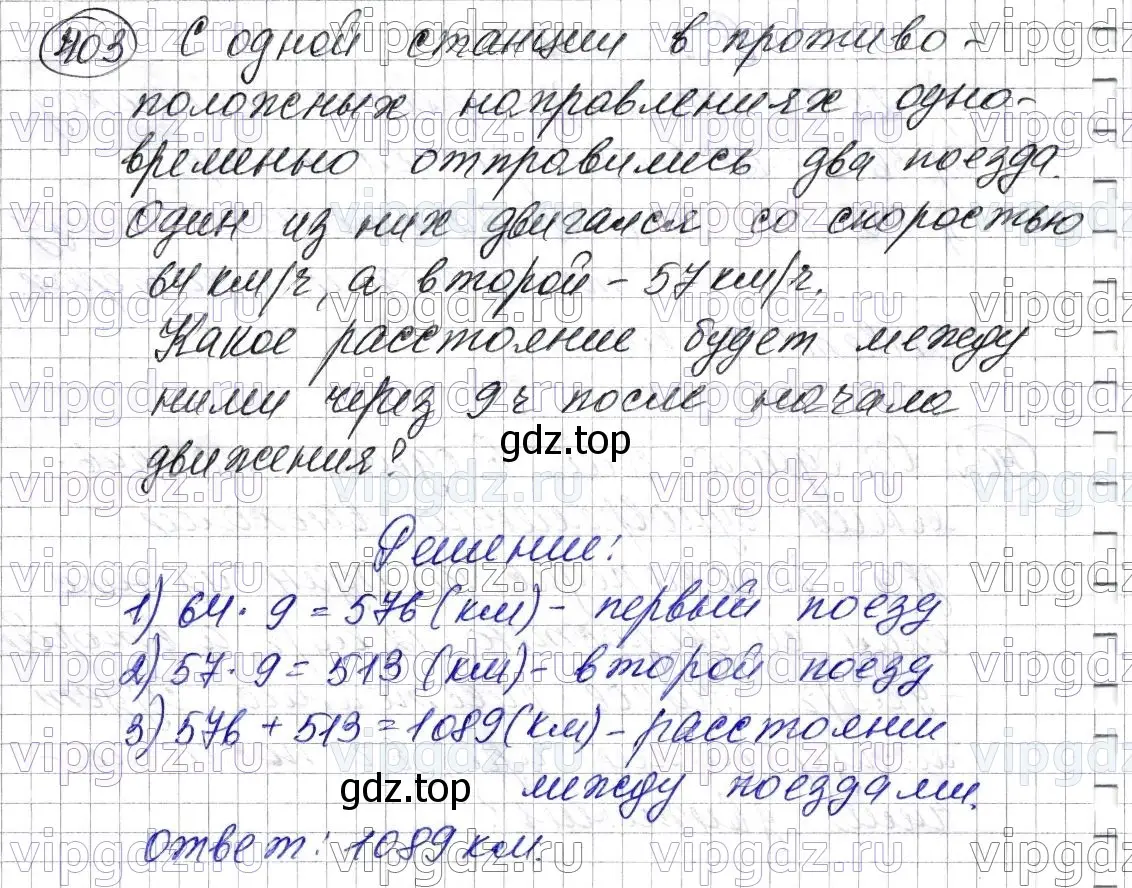 403 С одной станции в противо-
положных направлениях одно-
временно отправились два поезда.
Один из них двигался со скоростью
64 км/ч, а второй – 57 км/ч.
Какое расстояние будет между
ними через 9 ч после начала
gdz.top
движения?
Решение:
1) 64 · 9 = 576 (км) – первый поезд
2) 57 · 9 = 513 (км) – второй поезд
3) 576 + 513 = 1089 (км) – расстоянии
gdz.top между поездами.
ответ: 1089 км.
vipgdz.ru